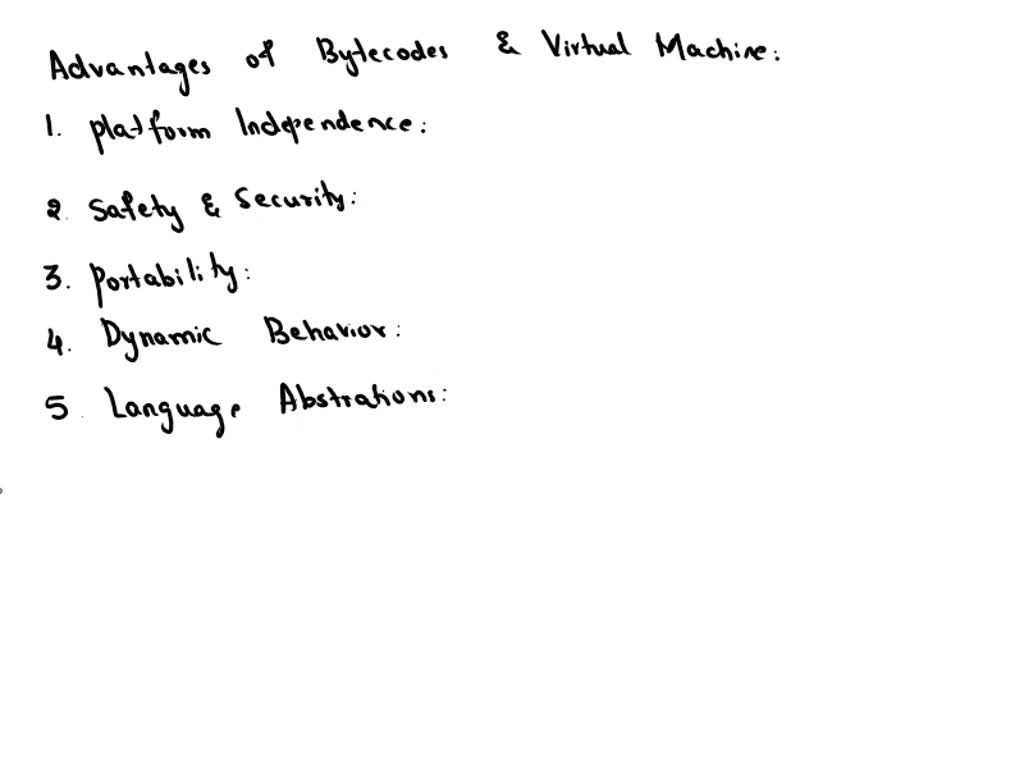 Advantages of Bytecodes & Virtual Machine:
1. Platform Independence:
2. Safety & Security:
3. Portability:
4. Dynamic Behavior:
5. Language Abstrations: